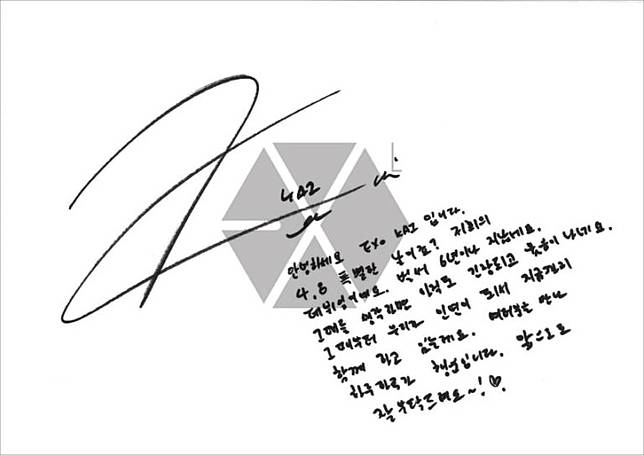 KAI
안녕하세요 EXO KAI 입니다.
4.8 특별한 날이죠? 저희의
데뷔일이에요. 벌써 6년이나 지났네요.
그때를 생각하면 아직도 긴장되고 웃음이 나네요.
그때부터 우리가 인연이 되서 지금까지
함께 하고 있는데요. 여러분을 만난
하루하루가 행복입니다. 앞으로도
잘 부탁드려요~! ♡